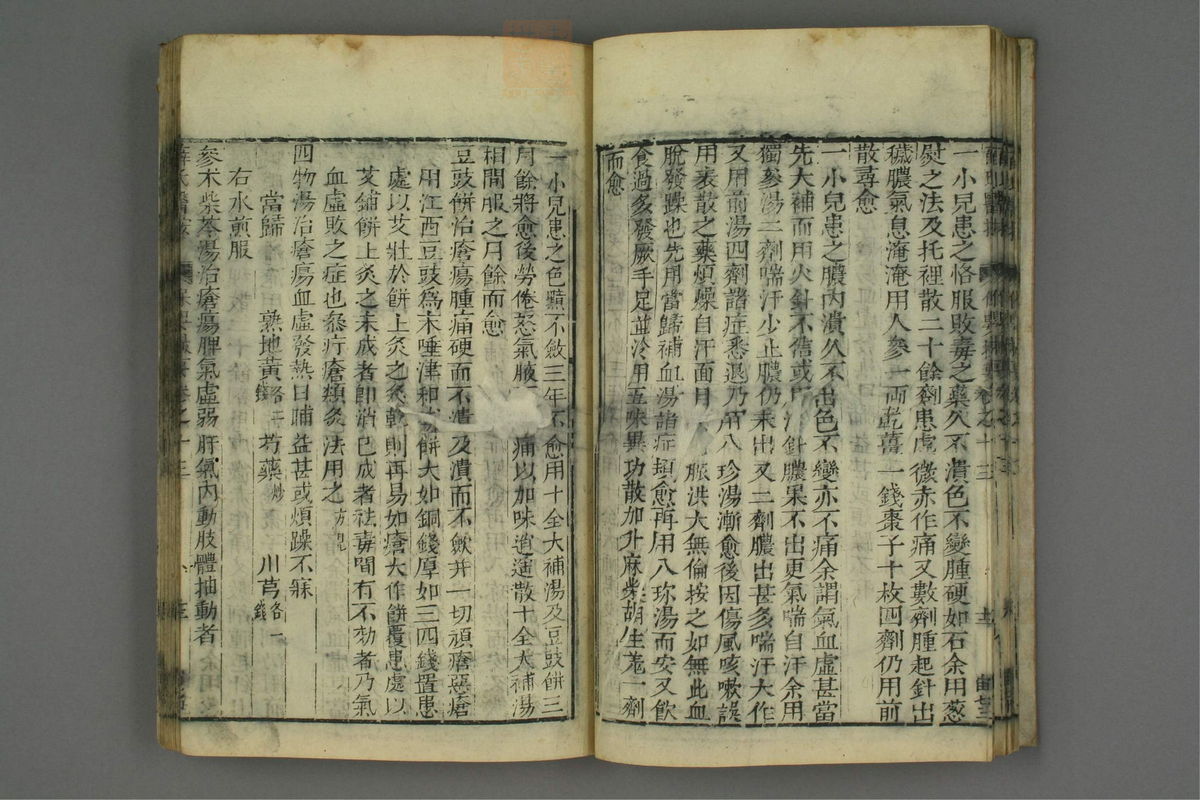 一小兒患之恪服敗毒之藥久不潰色不變腫硬如石余用葱
熨之法及托裡散二十餘劑患處微赤作痛又數劑腫起針出
穢膿氣息淹淹用人參一兩乾薑一錢棗子十枚四劑仍用前
散尋愈
一小兒患之膿內潰久不出色不變亦不痛余謂氣血虛甚當
先大補而用火針不信或用冷針膿果不出更氣喘自汗余用
獨參湯二劑喘汗少止膿仍未出又二劑膿出甚多喘汗大作
又用前湯四劑諸症悉退乃用八珍湯漸愈後因傷風咳嗽誤
用表散之藥煩燥自汗面目 脈洪大無倫按之如無此血
脫發躁也先用當歸補血湯諸症頓愈再用八珍湯而安又飲
食過多發厥手足並冷用五味異功散加升麻柴胡生薑一劑
而愈
一小兒患之色黯不斂三年不愈用十全大補湯及豆豉餅三
月餘將愈後勞倦怒氣腋下 痛以加味逍遙散十全大補湯
相間服之月餘而愈
豆豉餅治瘡瘍腫痛硬而不潰及潰而不斂并一切頑瘡惡瘡
用江西豆豉為末唾津和成餅大如銅錢厚如三四錢置患
處以艾壯於餅上灸之灸乾則再易如瘡大作餅覆患處以
艾鋪餅上灸之未成者即消已成者祛毒間有不効者乃氣
血虛敗之症也叅疔瘡類灸法用之方見
四物湯治瘡瘍血虛發熱日晡益甚或煩躁不寐
當歸 熟地黃各二錢 芍藥炒 川芎各一錢
右水煎服
參朮柴苓湯治瘡瘍脾氣虛弱肝氣內動肢體抽動者